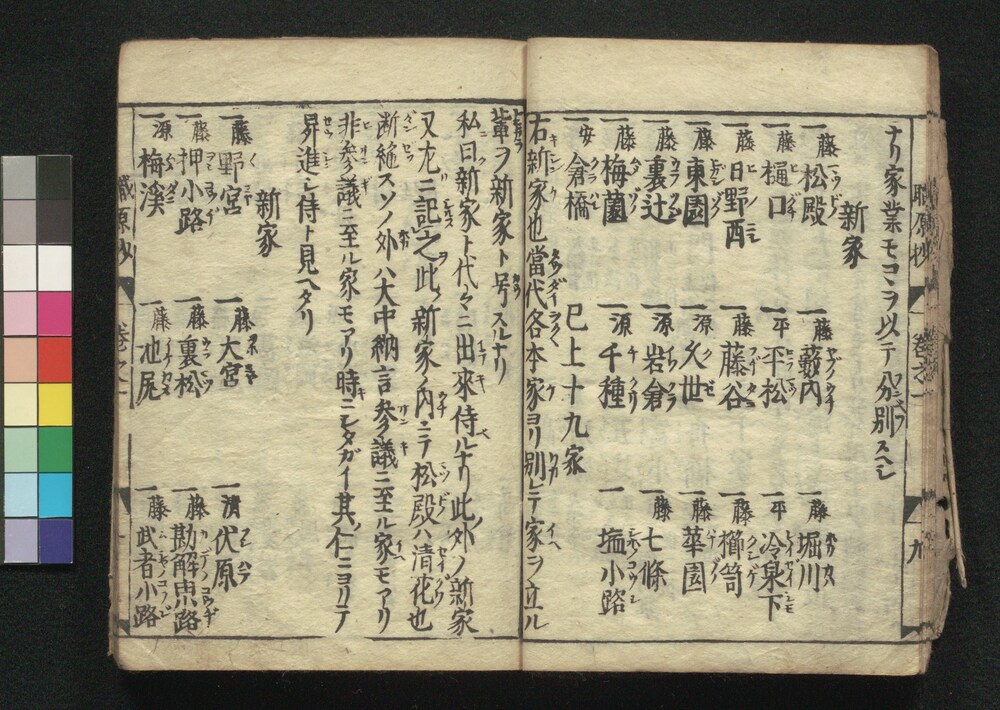 ナリ家業モコヽヲ以テ分別スヘシ
新家
一藤松殿 一藤藪内 一藤堀川
一藤樋口 一平平松 一平冷泉下
一藤日野西 一藤藤谷 一藤櫛笥
一藤東園 一源久世 一藤華園
一藤裏辻 一源岩倉 一藤七條
一藤梅園 一源千種 一塩小路
一安倉橋 已上十九家
右新家也當代各本家ヨリ別レテ家ヲ立ル
輩ヲ新家ト号スルナリ
私曰新家ト代々ニ出來侍ルナリ此外ノ新家
又左ニ記之此新家ノ内ニテ松殿ハ清花也
断絶スソノ外ハ大中納言参議ニ至ル家モアリ
非参議ニ至ル家モアリ時ニシタガイ其仁ニヨリテ
昇進シ侍ト見ヘタリ
新家
一藤野宮 一藤大宮 一清伏原
一藤押小路 一藤裏松 一藤勘解由小路
一源梅溪 一藤池尾 一藤武者小路
職原抄 卷之一 九
職原抄 卷之一